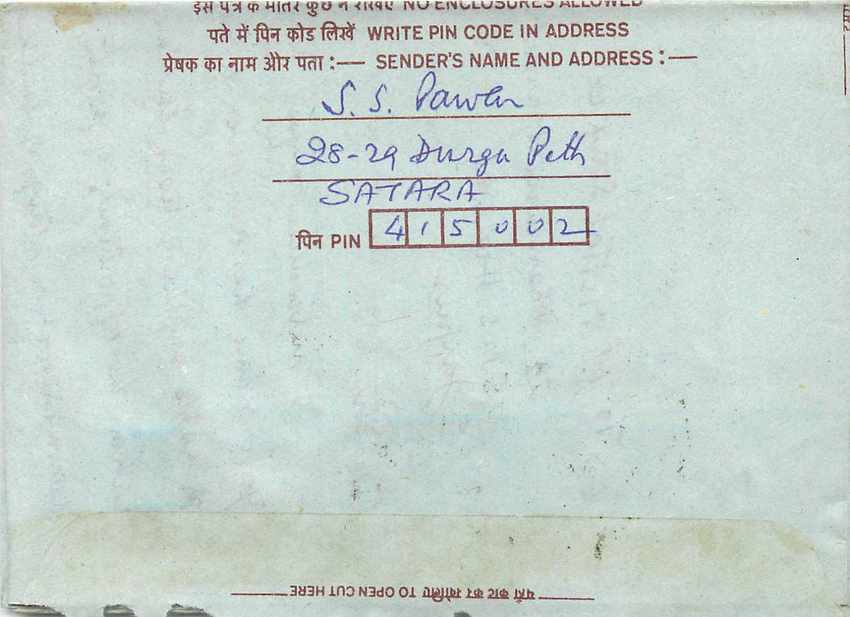 इस पत्र के भीतर कुछ न रखिए NO ENCLOSURES ALLOWED
पते में पिन कोड लिखें WRITE PIN CODE IN ADDRESS
प्रेषक का नाम और पता :— SENDER'S NAME AND ADDRESS :—
S. S. Pawar
28-29 Durga Peth
SATARA
पिन PIN 415002
यहाँ काट कर खोलिए TO OPEN CUT HERE